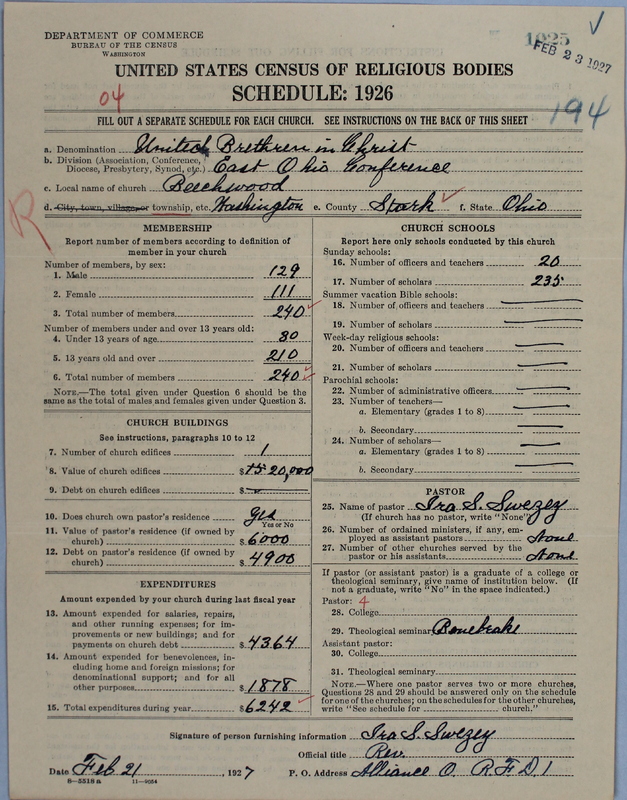 DEPARTMENT OF COMMERCE
BUREAU OF THE CENSUS
WASHINGTON
1925
FEB 23 1927
UNITED STATES CENSUS OF RELIGIOUS BODIES
SCHEDULE: 1926
04
194
FILL OUT A SEPARATE SCHEDULE FOR EACH CHURCH. SEE INSTRUCTIONS ON THE BACK OF THIS SHEET
a. Denomination United Brethren in Christ
b. Division (Association, Conference, Diocese, Presbytery, Synod, etc.) East Ohio Conference
c. Local name of church Beechwood
d. City, town, village, or township, etc. Washington e. County Stark f. State Ohio
R
MEMBERSHIP
Report number of members according to definition of
member in your church
Number of members, by sex:
1. Male 129
2. Female 111
3. Total number of members 240
Number of members under and over 13 years old:
4. Under 13 years of age 80
5. 13 years old and over 210
6. Total number of members 240
NOTE.—The total given under Question 6 should be
same as the total of males and females given under Question 3.
CHURCH BUILDINGS
See instructions, paragraphs 10 to 12
7. Number of church edifices 1
8. Value of church edifices $ 20,000
9. Debt on church edifices $
10. Does church own pastor's residence Yes
Yes or No
11. Value of pastor's residence (if owned by
church) $ 6000
12. Debt on pastor's residence (if owned by
church) $ 4900
EXPENDITURES
Amount expended by your church during last fiscal year
13. Amount expended for salaries, repairs,
and other running expenses; for im-
provements or new buildings; and for
payments on church debt $ 4364
14. Amount expended for benevolences, in-
cluding home and foreign missions; for
denominational support; and for all
other purposes $ 1878
15. Total expenditures during year $ 6242
CHURCH SCHOOLS
Report here only schools conducted by this church
Sunday schools:
16. Number of officers and teachers 20
17. Number of scholars 235
Summer vacation Bible schools:
18. Number of officers and teachers
19. Number of scholars
Week-day religious schools:
20. Number of officers and teachers
21. Number of scholars
Parochial schools:
22. Number of administrative officers
23. Number of teachers—
a. Elementary (grades 1 to 8)
b. Secondary
24. Number of scholars—
a. Elementary (grades 1 to 8)
b. Secondary
PASTOR
25. Name of pastor Ira S. Swezey
(If church has no pastor, write "None")
26. Number of ordained ministers, if any, em-
ployed as assistant pastors None
27. Number of other churches served by the
pastor or his assistants None
If pastor (or assistant pastor) is a graduate of a college or
theological seminary, give name of institution below. (If
not a graduate, write "No" in the space indicated.)
Pastor: 4
28. College
29. Theological seminary Bonebrake
Assistant pastor:
30. College
31. Theological seminary
NOTE.—Where one pastor serves two or more churches,
Questions 28 and 29 should be answered only on the schedule
for one of the churches; on the schedules for the other churches,
write "See schedule for church."
Signature of person furnishing information Ira S. Swezey
Official title Rev.
Date Feb 21, 1927 P. O. Address Alliance O. R.F.D. 1
8—5518 a 11—9054